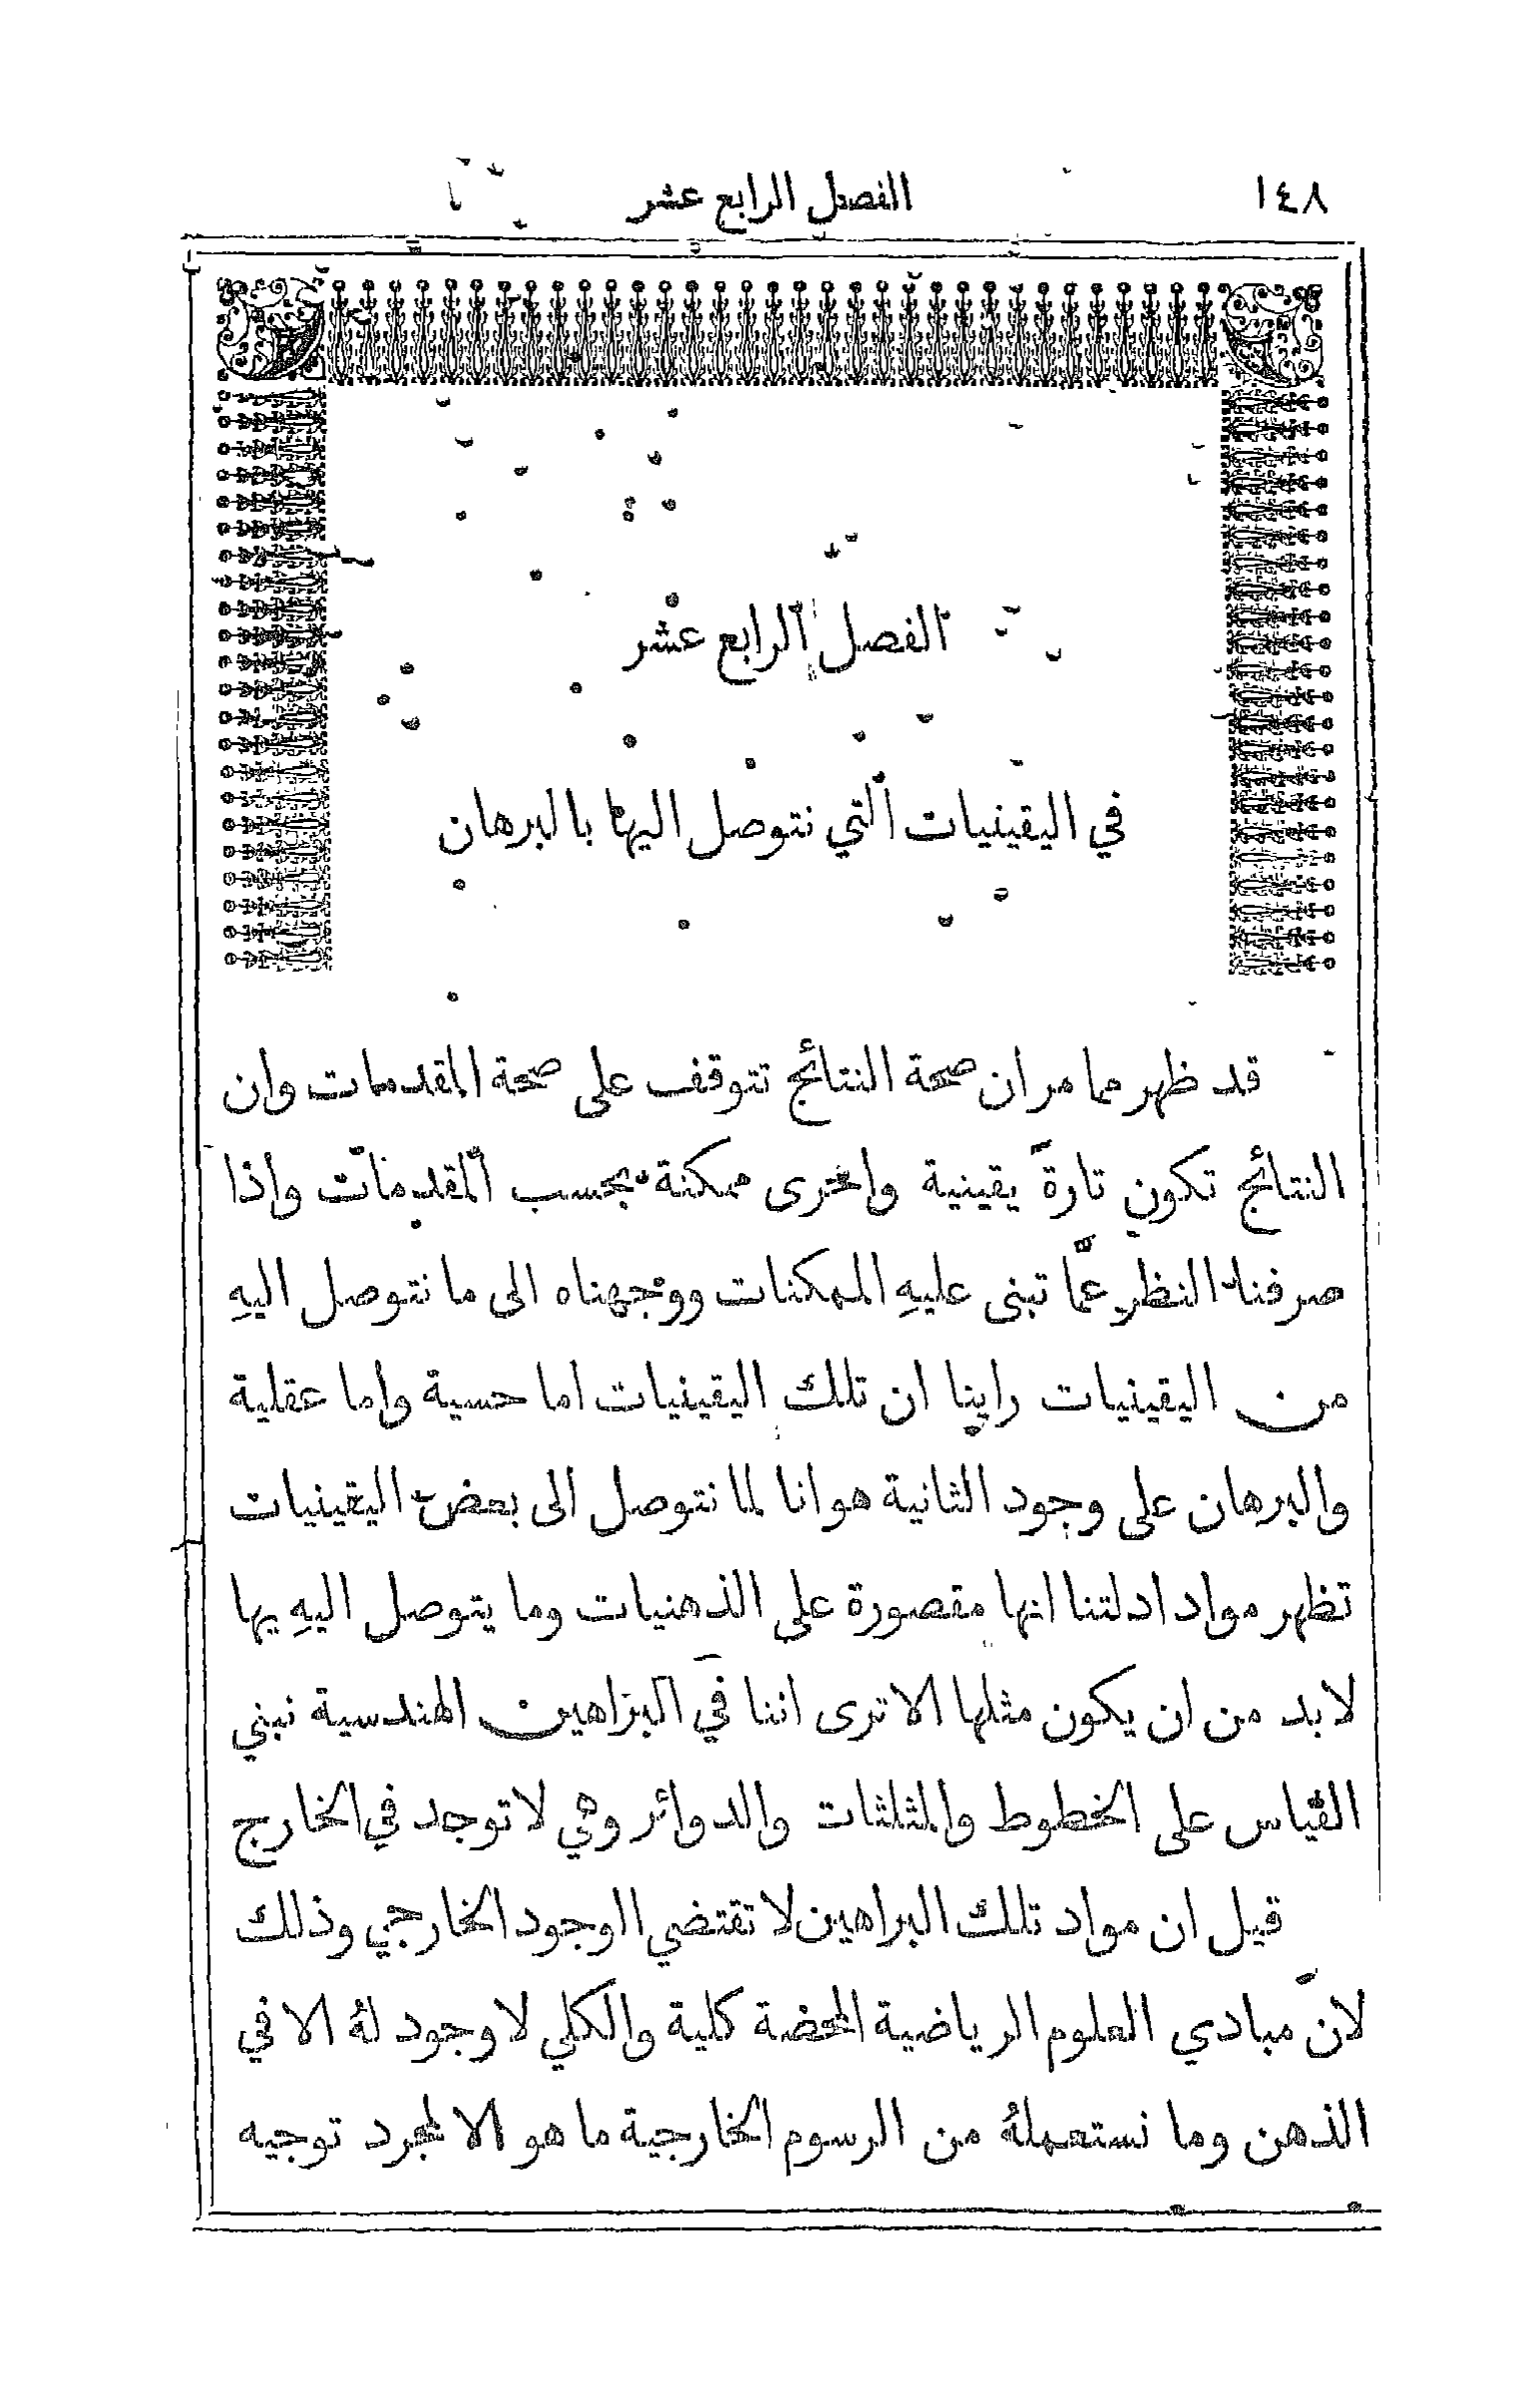 ١٤٨ الفصل الرابع عشر
الفصل الرابع عشر
في اليقينيات التي نتوصل اليها بالبرهان
قد ظهر مما مر ان صحة النتائج تتوقف على صحة المقدمات وان
النتائج تكون تارةً يقينية واخرى ممكنة بحسب المقدمات واذا
صرفنا النظر عمَّا تبنى عليهِ الممكنات ووجهناه الى ما نتوصل اليهِ
من اليقينيات راينا ان تلك اليقينيات اما حسية واما عقلية
والبرهان على وجود الثانية هو انا لما نتوصل الى بعض اليقينيات
تظهر مواد ادلتنا انها مقصورة على الذهنيات وما يتوصل اليهِ بها
لا بد من ان يكون مثلها الا ترى اننا في البراهين الهندسية نبني
القياس على الخطوط والمثلثات والدوائر وهي لا توجد في الخارج
قيل ان مواد تلك البراهين لا تقتضي الوجود الخارجي وذلك
لانَّ مبادي العلوم الرياضية المحضة كلية والكلي لا وجود لهُ الا في
الذهن وما نستعملهُ من الرسوم الخارجية ما هو الا لمجرد توجيه